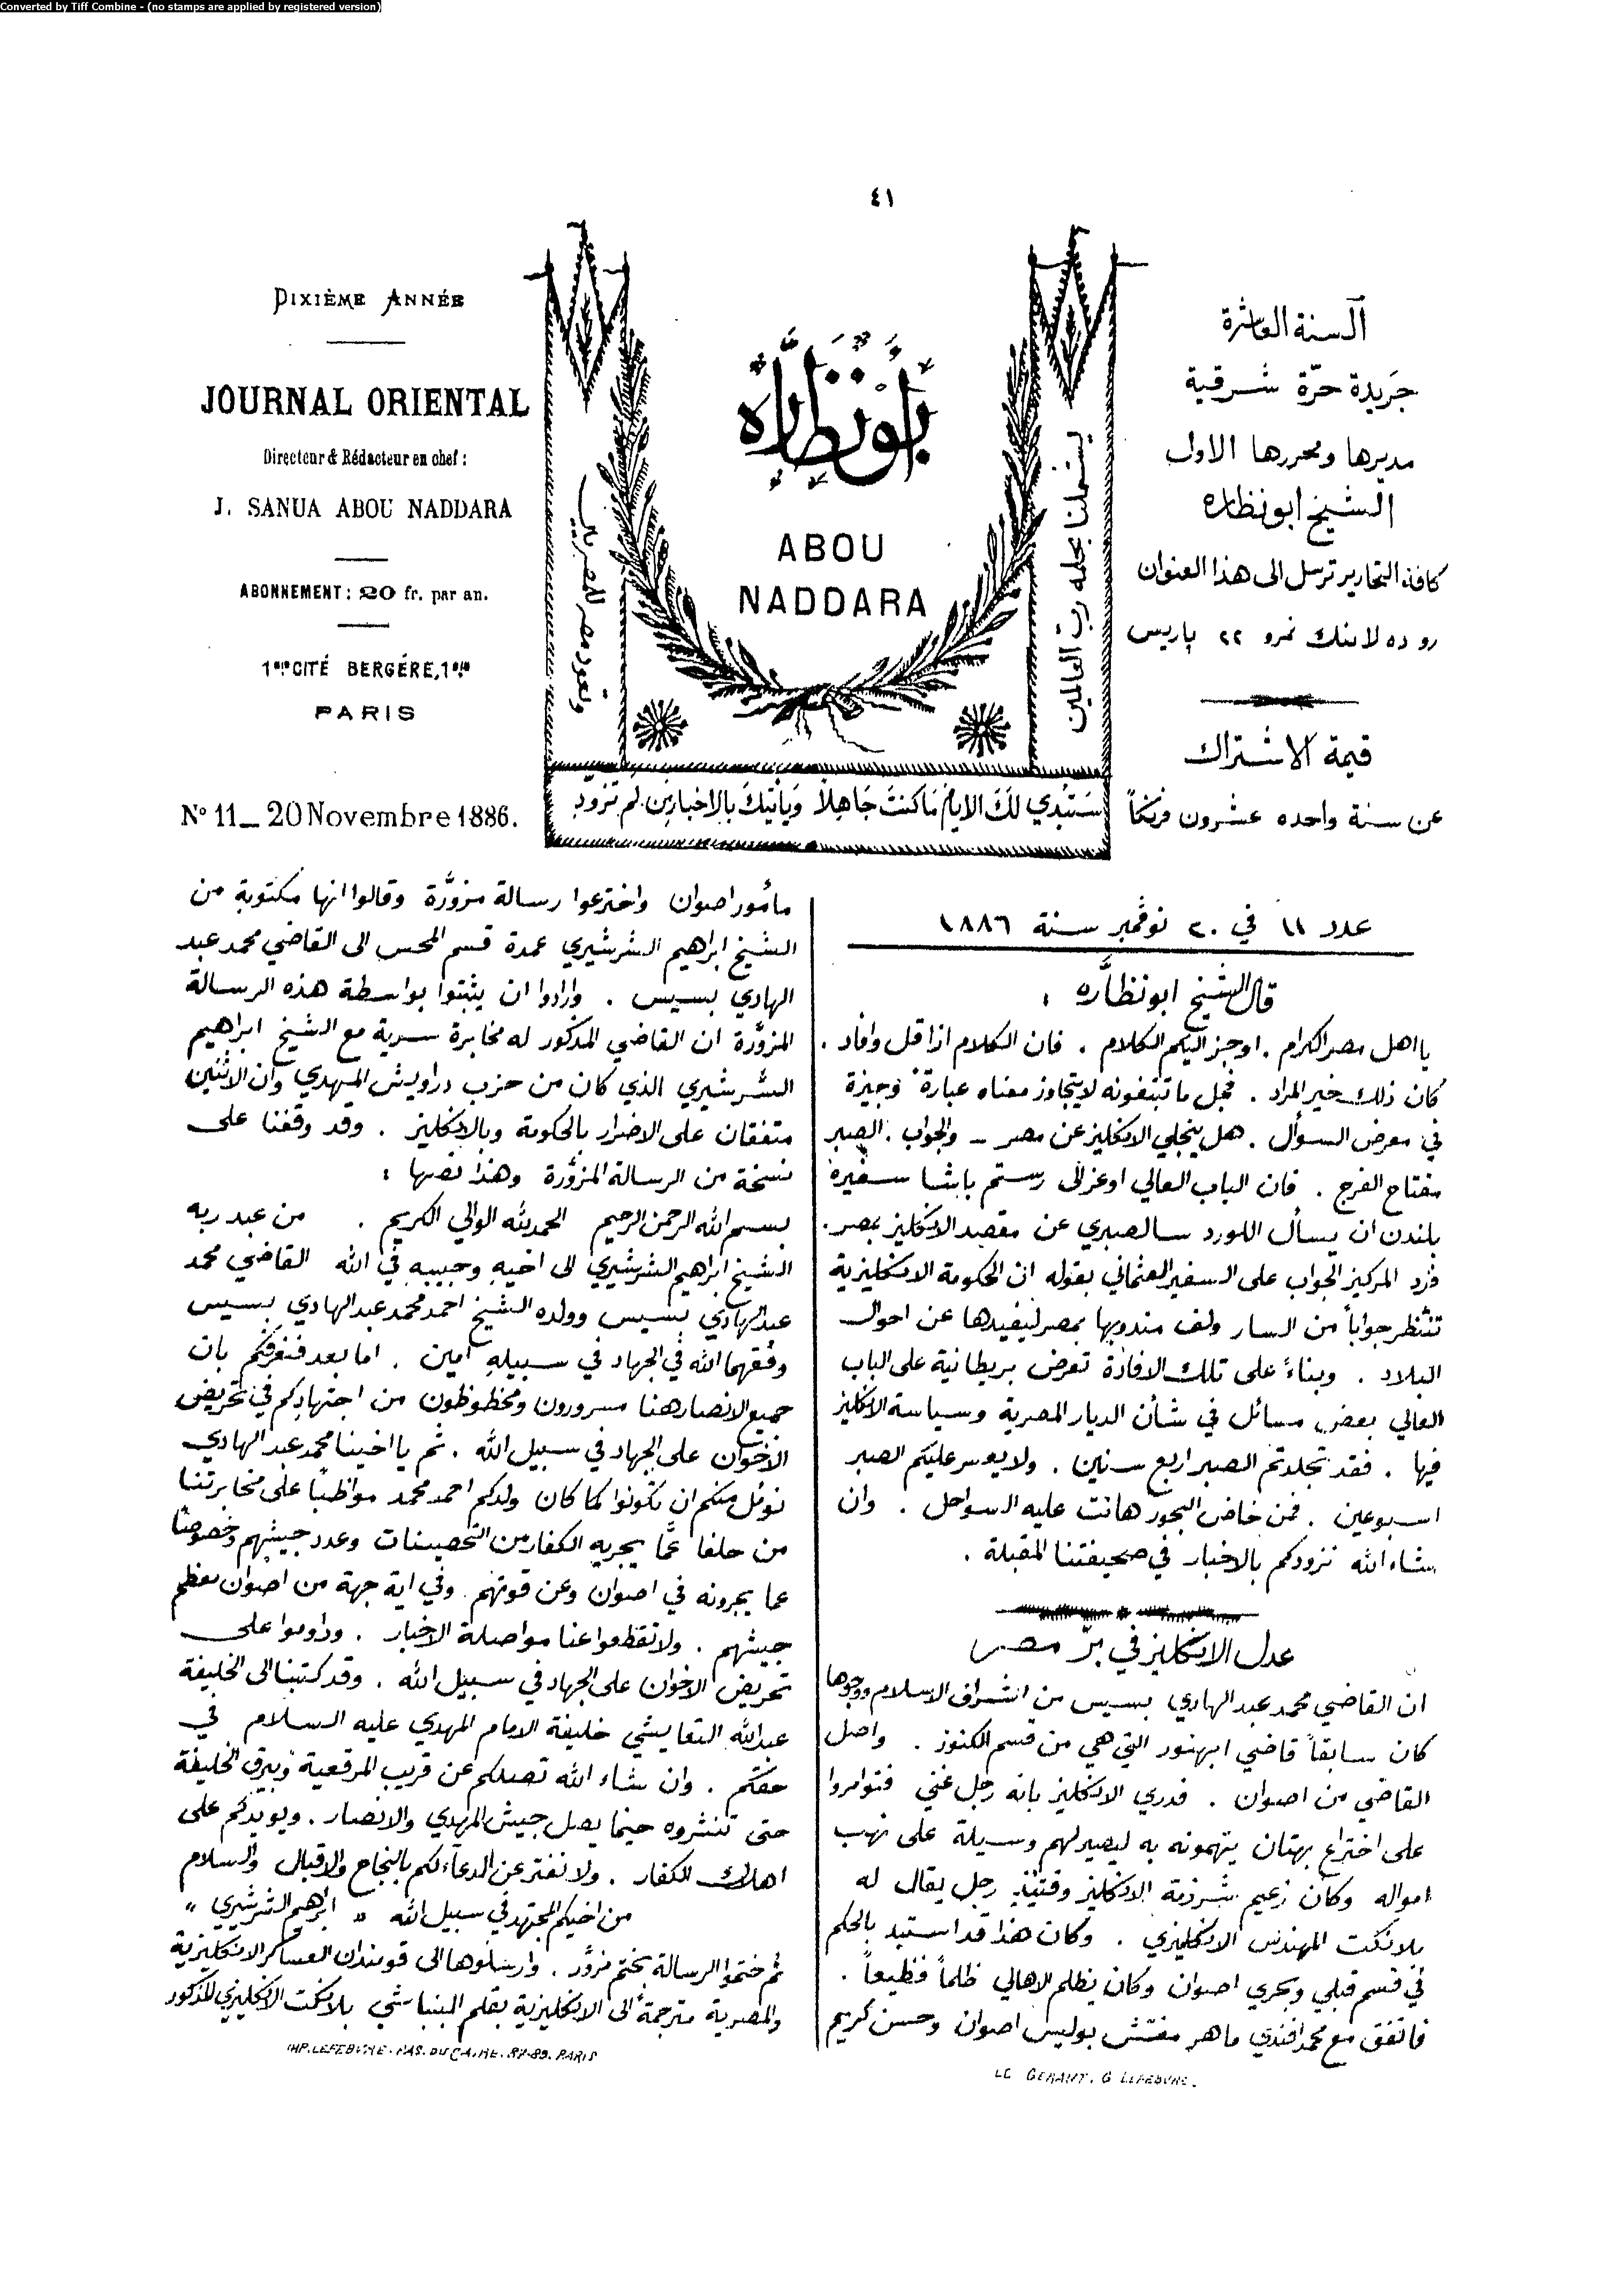 Converted by Tiff Combine - (no stamps are applied by registered version)
٤١
DIXIÈME ANNÉE
JOURNAL ORIENTAL
Directeur & Rédacteur en chef:
J. SANUA ABOU NADDARA
ABONNEMENT: 20 fr. par an.
1bis CITÉ BERGÉRE, 1bis
PARIS
Nº 11 _ 20 Novembre 1886.
أبو نظارة
ABOU
NADDARA
يشملنا بحلمه رب العالمين
وتعود مصر للمصريين
سَتُبْدي لَكَ الايامُ مَا كنتَ جَاهِلاً وَيَأتيكَ بالاخبارِ من لم تزودِ
السنة العاشرة
جَريدة حرّة شرقية
مديرها ومحررها الاول
الشيخ ابو نظاره
كافة التحارير ترسل الى هذا العنوان
رو ده لابنك نمرو ٢٢ پاريس
قيمة الاشتراك
عن سنة واحده عشرون فرنكاً
عدد ١١ في ٢٠ نوڤمبر سنة ١٨٨٦
قال الشيخ ابو نظاره :
يا اهل مصر الكرام . اوجز اليكم الكلام . فان الكلام اذا قل وافاد .
كان ذلك خير المراد . فجل ما تبتغونه لا يتجاوز معناه عبارة وجيزة
في معرض السوأل . هل ينجلي الانكليز عن مصر – والجواب . الصبر
مفتاح الفرج . فان الباب العالي اوعز الى رستم باشا سفيره
بلندن ان يسأل اللورد سالصبري عن مقصد الانكليز بمصر .
فرد المركيز الجواب على السفير العثماني بقوله ان الحكومة الانكليزية
تنتظر جواباً من السار ولف مندوبها بمصر ليفيدها عن احوال
البلاد . وبناءً على تلك الافادة تعرض بريطانية على الباب
العالي بعض مسائل في شأن الديار المصرية وسياسة الانكليز
فيها . فقد تجلدتم الصبر اربع سنين . ولا يعسر عليكم الصبر
اسبوعين . فمن خاض البحور هانت عليه السواحل . وان
شاء الله نزودكم بالاخبار في صحيفتنا المقبلة .
عدل الانكليز في برّ مصر
ان القاضي محمد عبد الهادي بسيس من اشراف الاسلام ووجوها
كان سابقاً قاضي ابهنور التي هي من قسم الكنوز . واصل
القاضي من اصوان . فدري الانكليز بانه رجل غني فتوامروا
على اختراع بهتان يتهمونه به ليصير لهم وسيلة على نهب
امواله وكان زعيم شرذمة الانكليز وقتئذٍ رجل يقال له
بلانكت المهندس الانكليزي . وكان هذا قد استبد بالحكم
في قسم قبلي وبحري اصوان وكان يظلم الاهالي ظلماً فظيعاً .
فاتفق مع محمد افندي ماهر مفتش بوليس اصوان وحسن كريم
مأمور اصوان واخترعوا رسالة مزوَّرة وقالوا انها مكتوبة من
الشيخ ابراهيم الشرشيري عمدة قسم المحس الى القاضي محمد عبد
الهادي بسيس . وارادوا ان يثبتوا بواسطة هذه الرسالة
المزوَّرة ان القاضي المذكور له مخابرة سرية مع الشيخ ابراهيم
الشرشيري الذي كان من حزب دراويش المهدي وان الاثنين
متفقان على الاضرار بالحكومة وبالانكليز . وقد وقفنا على
نسخة من الرسالة المزوَّرة وهذا نصها :
بسم الله الرحمن الرحيم الحمد لله الوالي الكريم . من عبد ربه
الشيخ ابراهيم الشرشيري الى اخيهِ وحبيبهِ في الله القاضي محمد
عبد الهادي بسيس وولده الشيخ احمد محمد عبد الهادي بسيس
وفقهما الله في الجهاد في سبيلهِ آمين . اما بعد فنعرفكم بان
جميع الانصار هنا مسرورون ومحظوظون من اجتهادكم في تحريض
الاخوان على الجهاد في سبيل الله . ثم يا اخينا محمد عبد الهادي
نوئمل منكم ان تكونوا كما كان ولدكم احمد محمد مواظباً على مخابرتنا
من حلفا عمَّا يجريه الكفار من التحصينات وعدد جيشهم وخصوصاً
عما يجرونه في اصوان وعن قوتهم وفي اية جهة من اصوان معظم
جيشهم . ولا تقطعوا عنا مواصلة الاخبار . وداوموا على
تحريض الاخوان على الجهاد في سبيل الله . وقد كتبنا الى الخليفة
عبد الله التعايشي خليفة الامام المهدي عليه السلام في
حقكم . وان شاء الله تصلكم عن قريب المرقعية وبيرق الخليفة
حتى تنشروه حينما يصل جيش المهدي والانصار . ويويدكم على
اهلاك الكفار . ولا نفتر عن الدعاء لكم بالنجاح والاقبال والسلام
من اخيكم المجتهد في سبيل الله « ابراهيم الشرشيري »
ثم ختموا الرسالة بختم مزوَّر . وارسلوها الى قومندان العساكر الانكليزية
والمصرية مترجمةً الى الانكليزية بقلم البنباشي بلانكت الانكليزي المذكور
IMP. LEFEBVRE. PAS. DU CAIRE. 87-89. PARIS
LE GERANT. G LEFEBVRE.